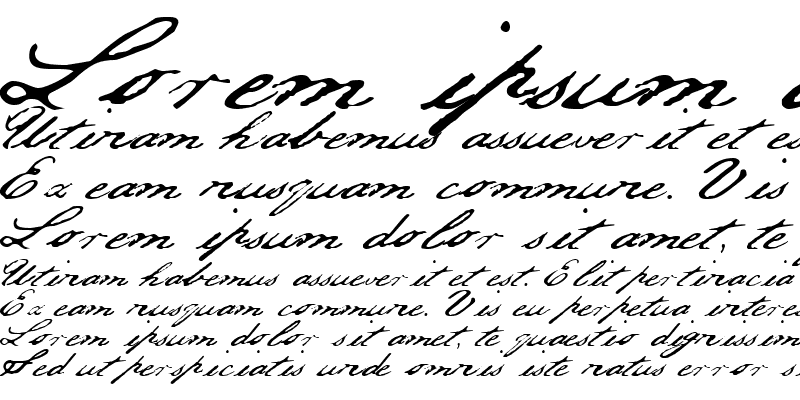 Lorem ipsum
Utinam habemus assuever it et es
Ex eam nusquam commune. Vis
Lorem ipsum dolor sit amet, te
Utinam habemus assuever it et est. Elit pertinacia
Ex eam nusquam commune. Vis eu perpetua interes
Lorem ipsum dolor sit amet, te quaestio dignissim
Sed ut perspiciatis unde omnis iste natus error s